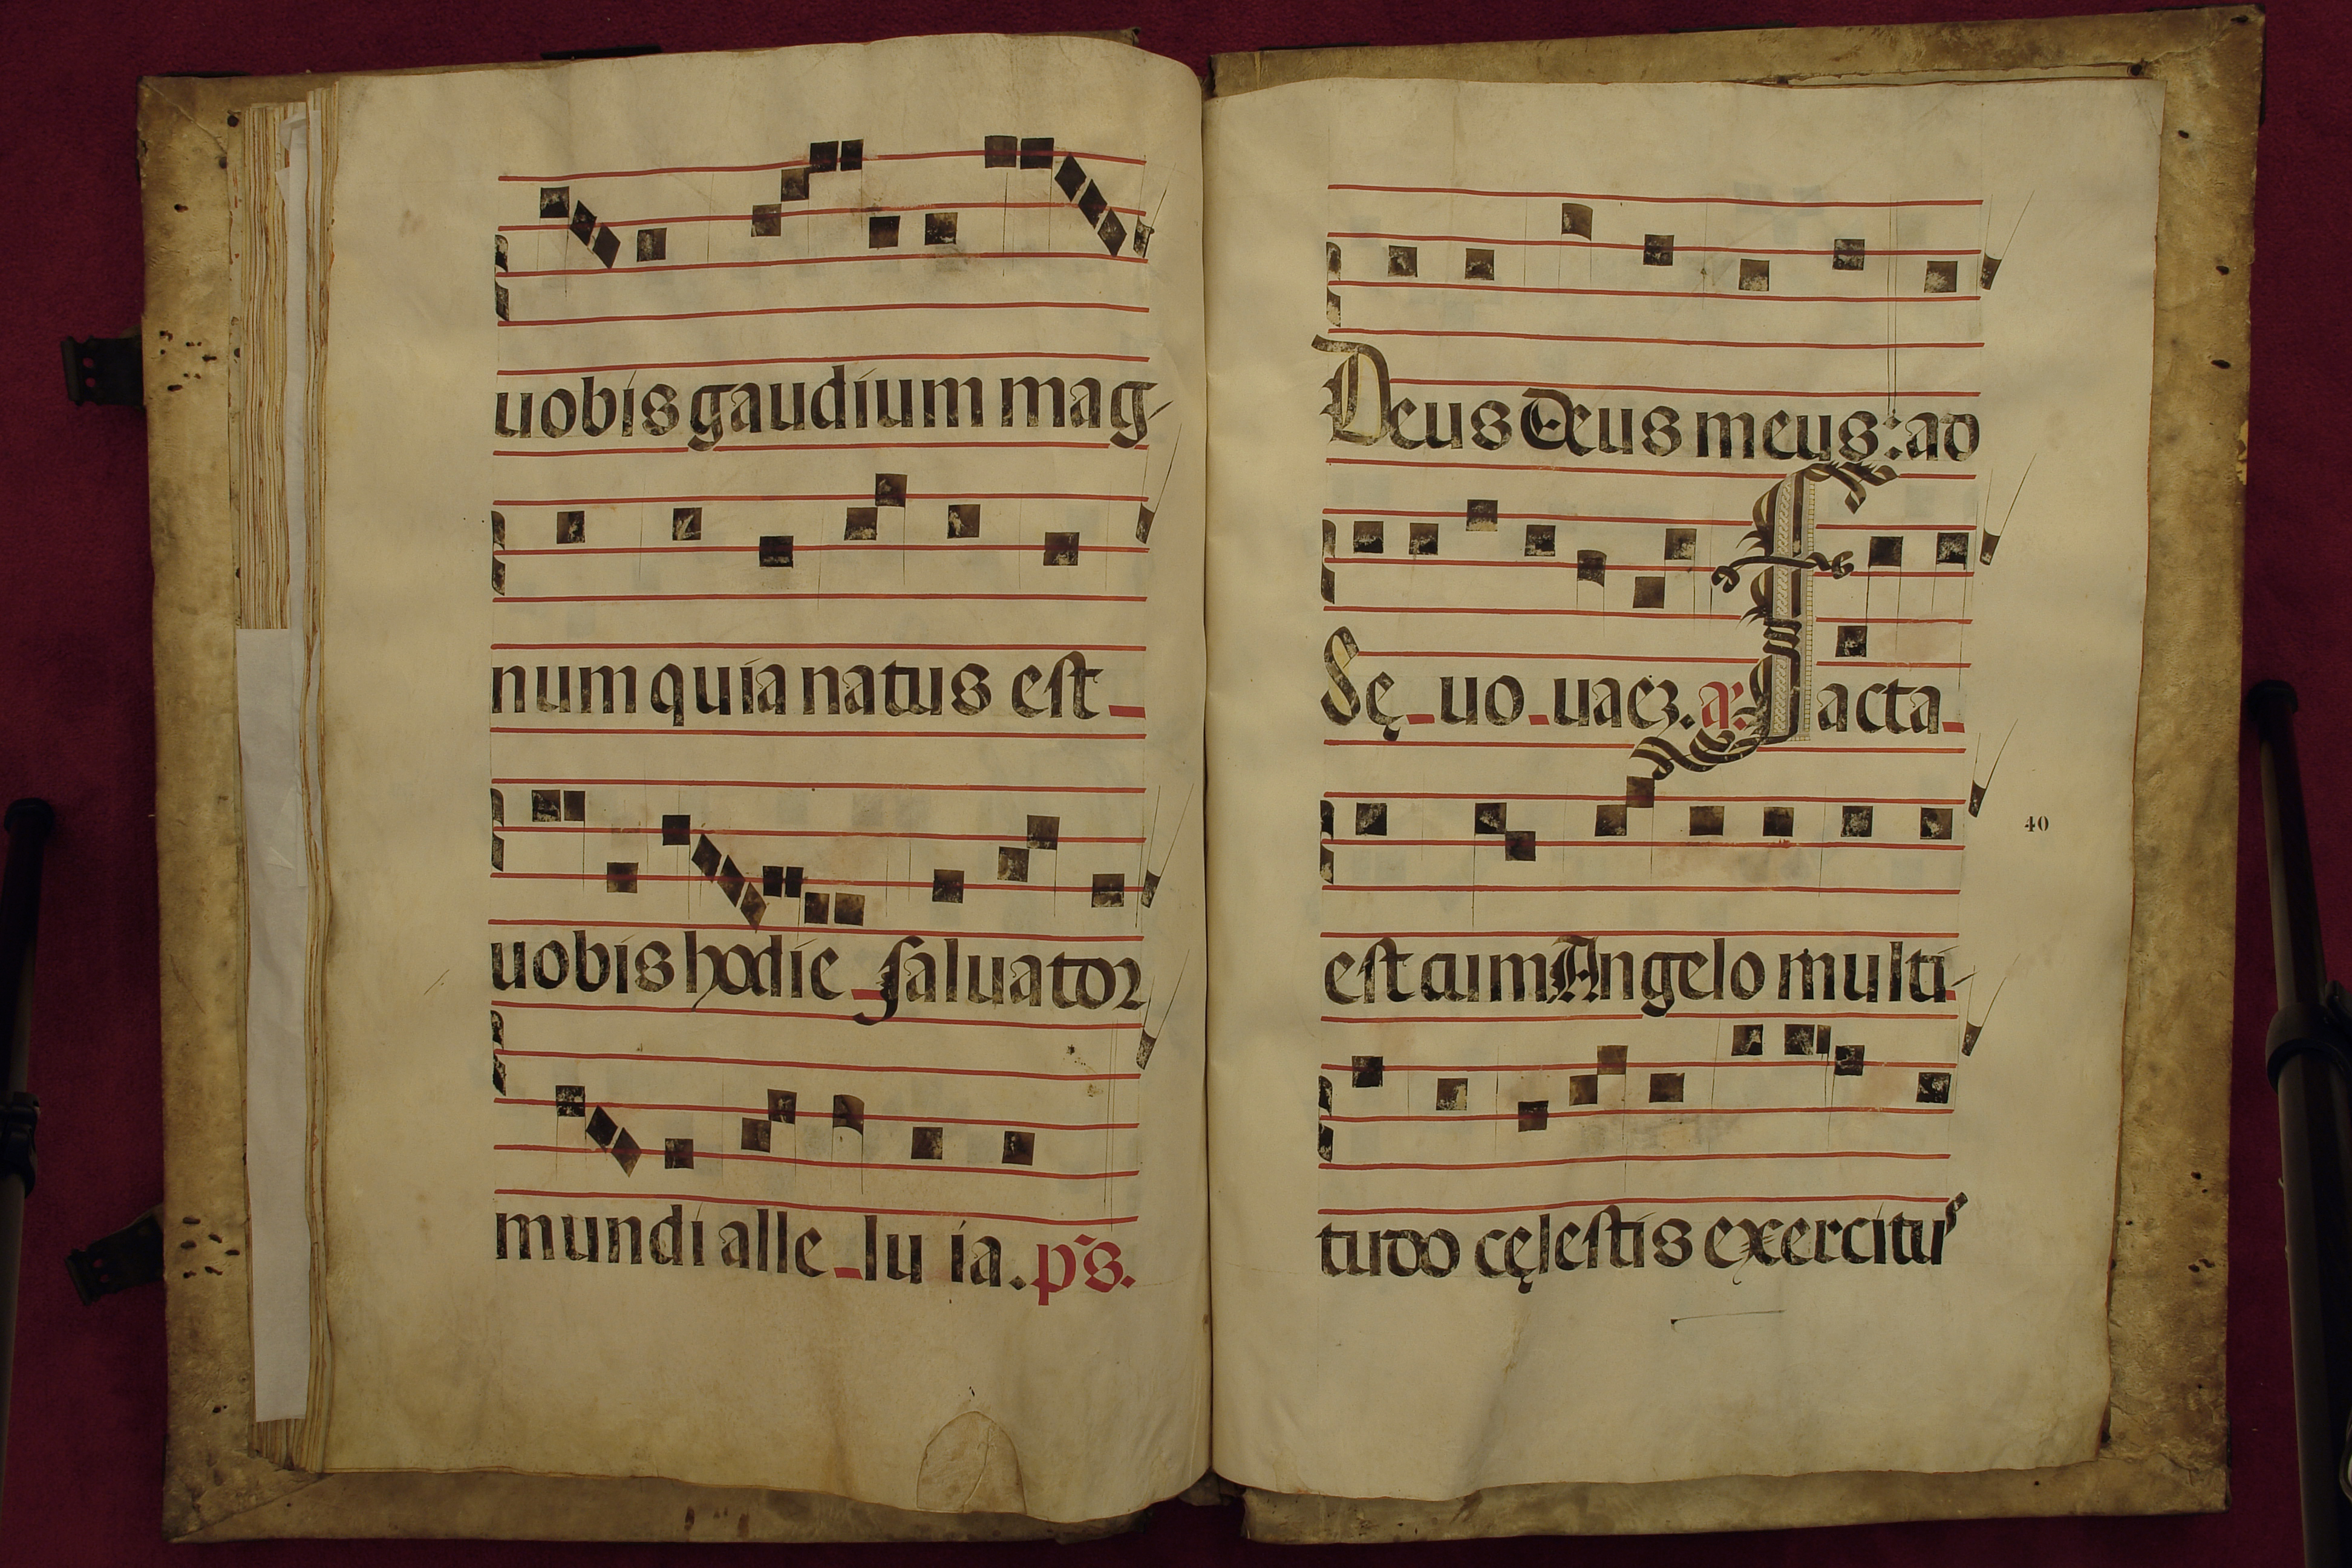 uobis gaudium mag-
num quia natus est
uobis hodie saluator
mundi alle lu ia. ps.
Deus Deus meus: ad
Sę uo uaeʒ. a. Facta
est cum Angelo multi-
40
tudo cęlestis exercitus